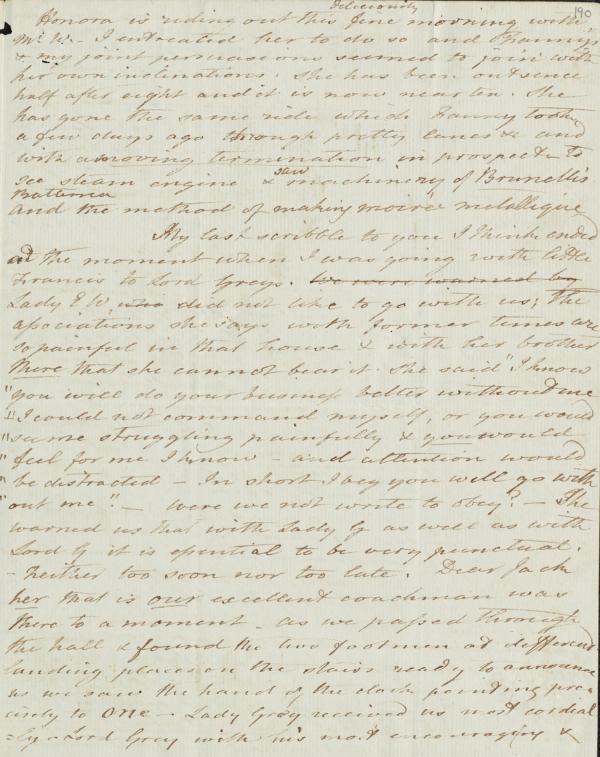 190
deliciously
Honora is riding out this fine morning with
Mr. W. - I entreated her to do so and Fanny's
& my joint persuasions seemed to join with
her own inclinations. She has been out since
half after eight and it is now near ten. She
has gone the same ride which Fanny took
a few days ago through pretty lanes & and
with a moving termination in prospect - to
see steam engine & saw machinery of Brunell's
Battersea
and the method of making moiré metallique
My last scribble to you I think ended
at the moment when I was going with little
Francis to Lord Greys. We were warned by
Lady E W did not like to go with us; The
associations she says with former times are
so painful in that house & with her brother
there that she cannot bear it. She said "I know
"you will do your business better without me
"I could not command myself, or you would
"see me struggling painfully & you would
"feel for me I know - and attention would
"be distracted - In short I beg you will go with
"out me" - were we not write to obey? - She
warned us that with Lady G as well as with
Lord G it is essential to be very punctual.
- neither too soon nor too late. Dear Jack
her that is our excellent coachman was
there to a moment - as we passed through
the hall & found the two footmen at different
landing places on the stairs ready to announce
us we saw the hand of the clock pointing pre-
cisely to one - Lady Grey received us most cordial
=ly - Lord Grey with his most encouraging &